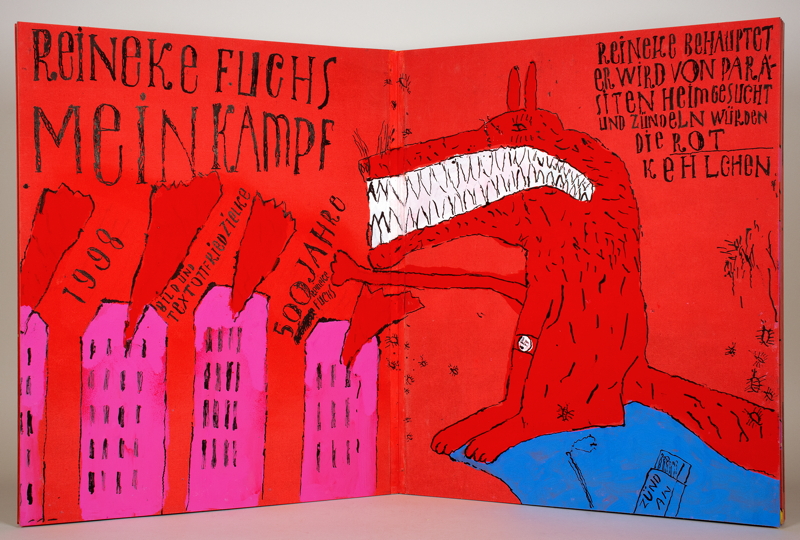 REINEKE FUCHS
MEIN KAMPF
1998
BILD UND
TEXT OTTFRIED ZIELKE
500 JAHRE
REINEKE
FUCHS
REINEKE BEHAUPTET
ER WIRD VON PARÄ-
SITEN HEIMGESUCHT
UND ZÜNDELN WÜRDEN
DIE ROT
KEHLCHEN
ZÜND
AN